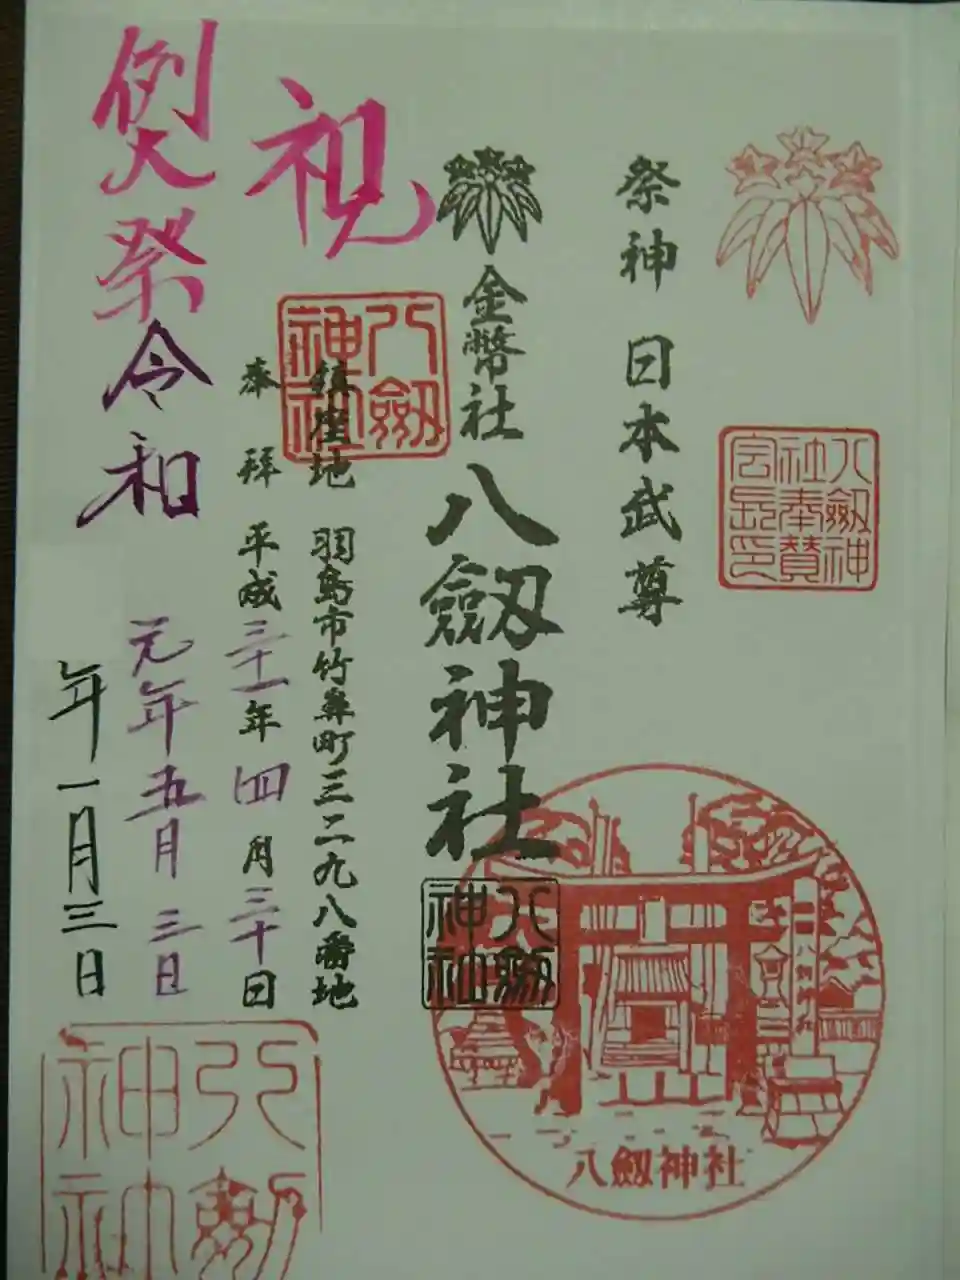 祭神 日本武尊
八劔神社奉賛会長印
金幣社 八劔神社
八劔神社
八劔神社
鎮座地 羽島市竹鼻町三二九八番地
八劔神社
奉拝 平成三十一年四月三十日
祝
例大祭 令和
元年五月三日
年一月三日
八劔神社